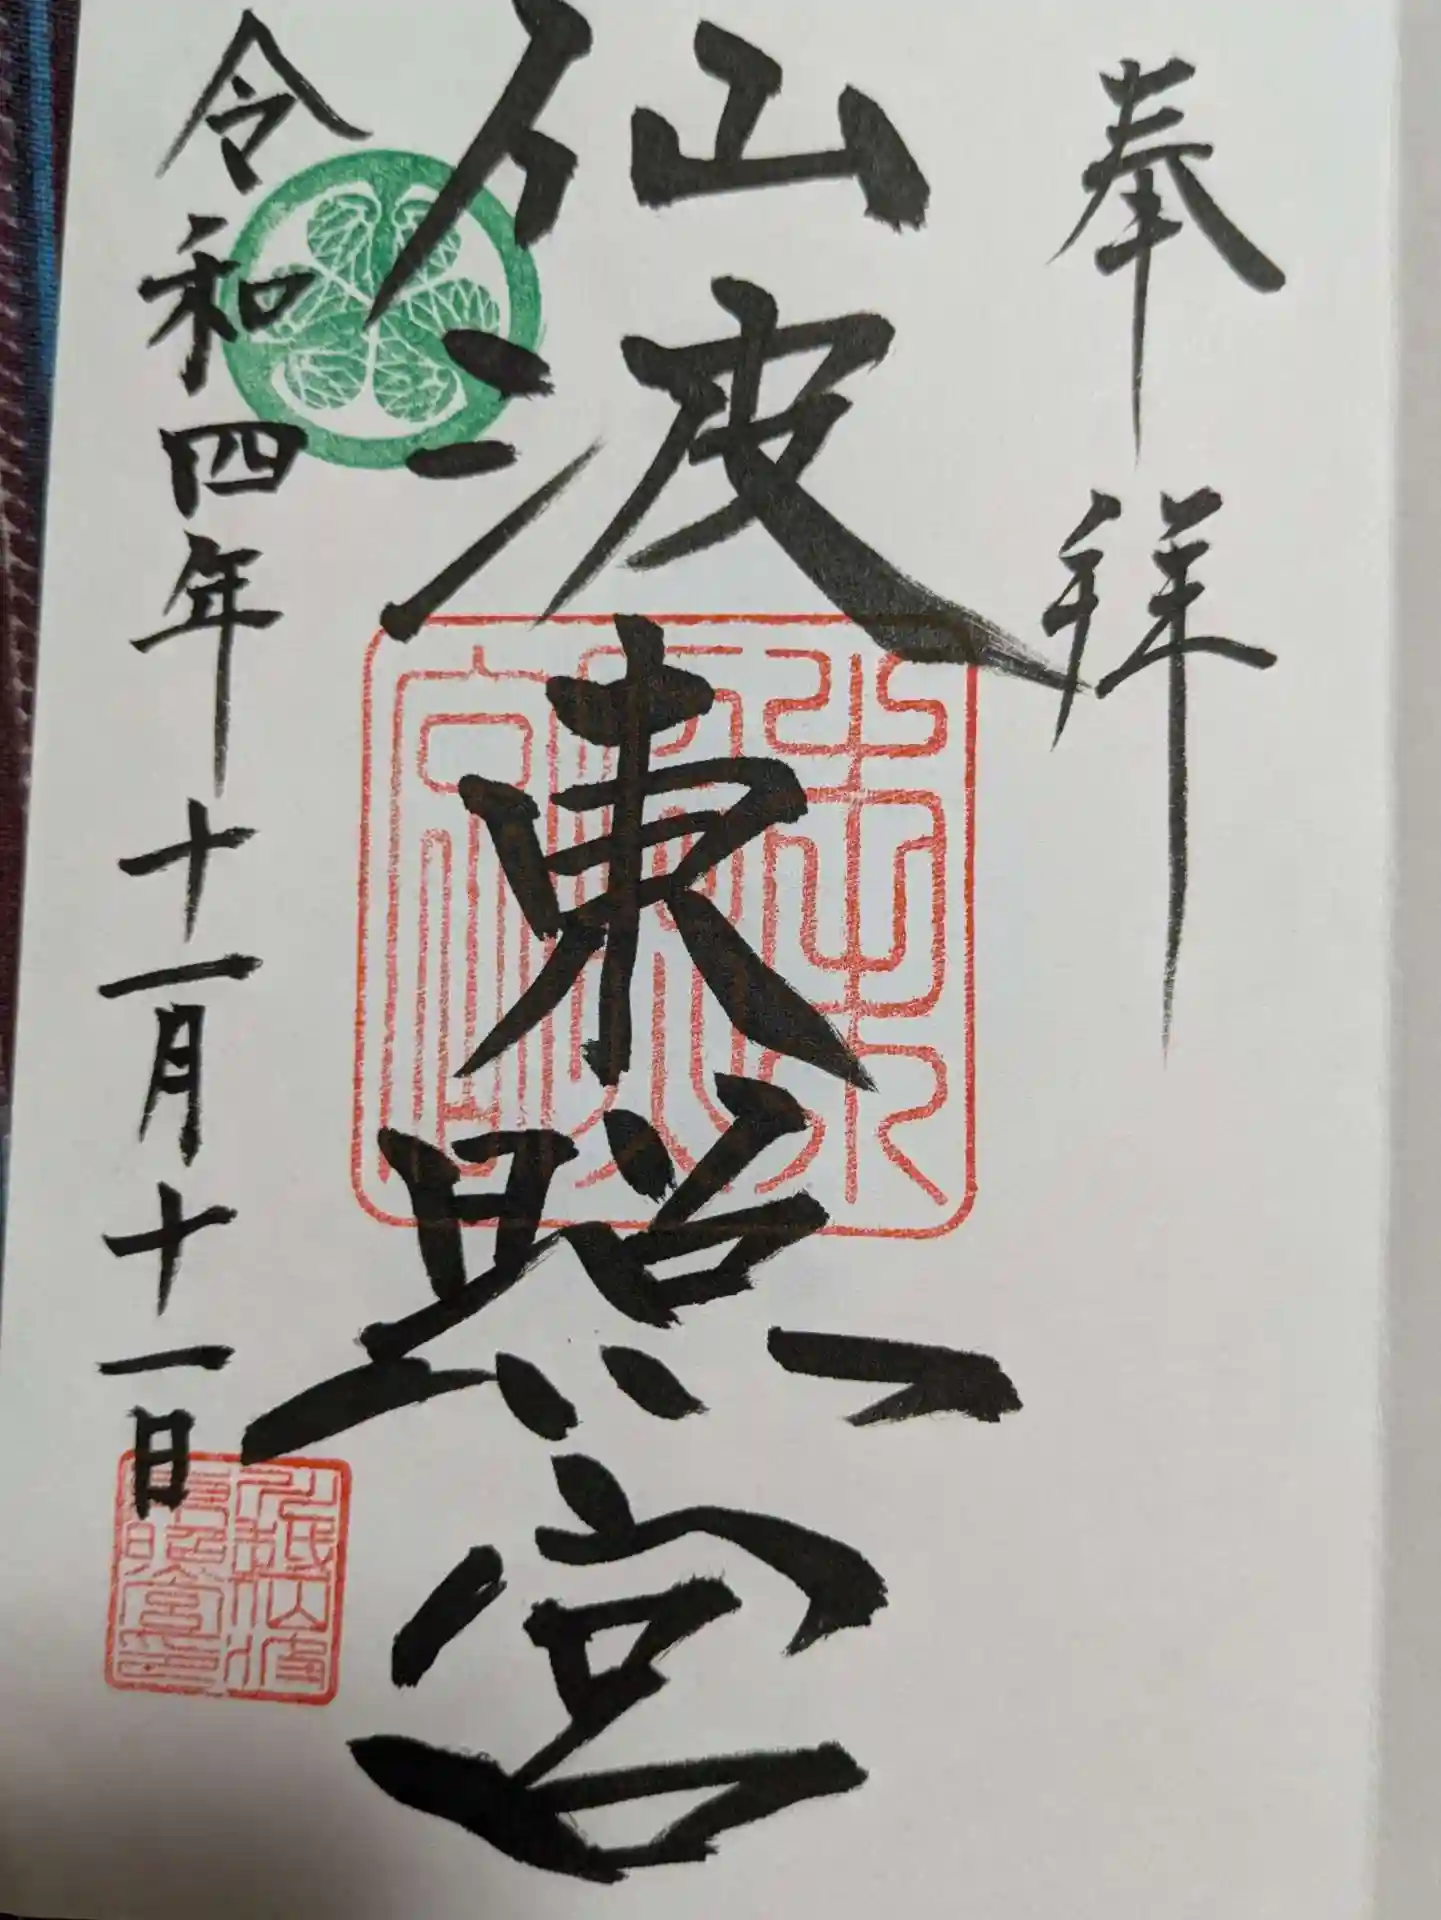 奉拝
仙波東照宮
令和四年十一月十一日
川越仙波
東照宮印